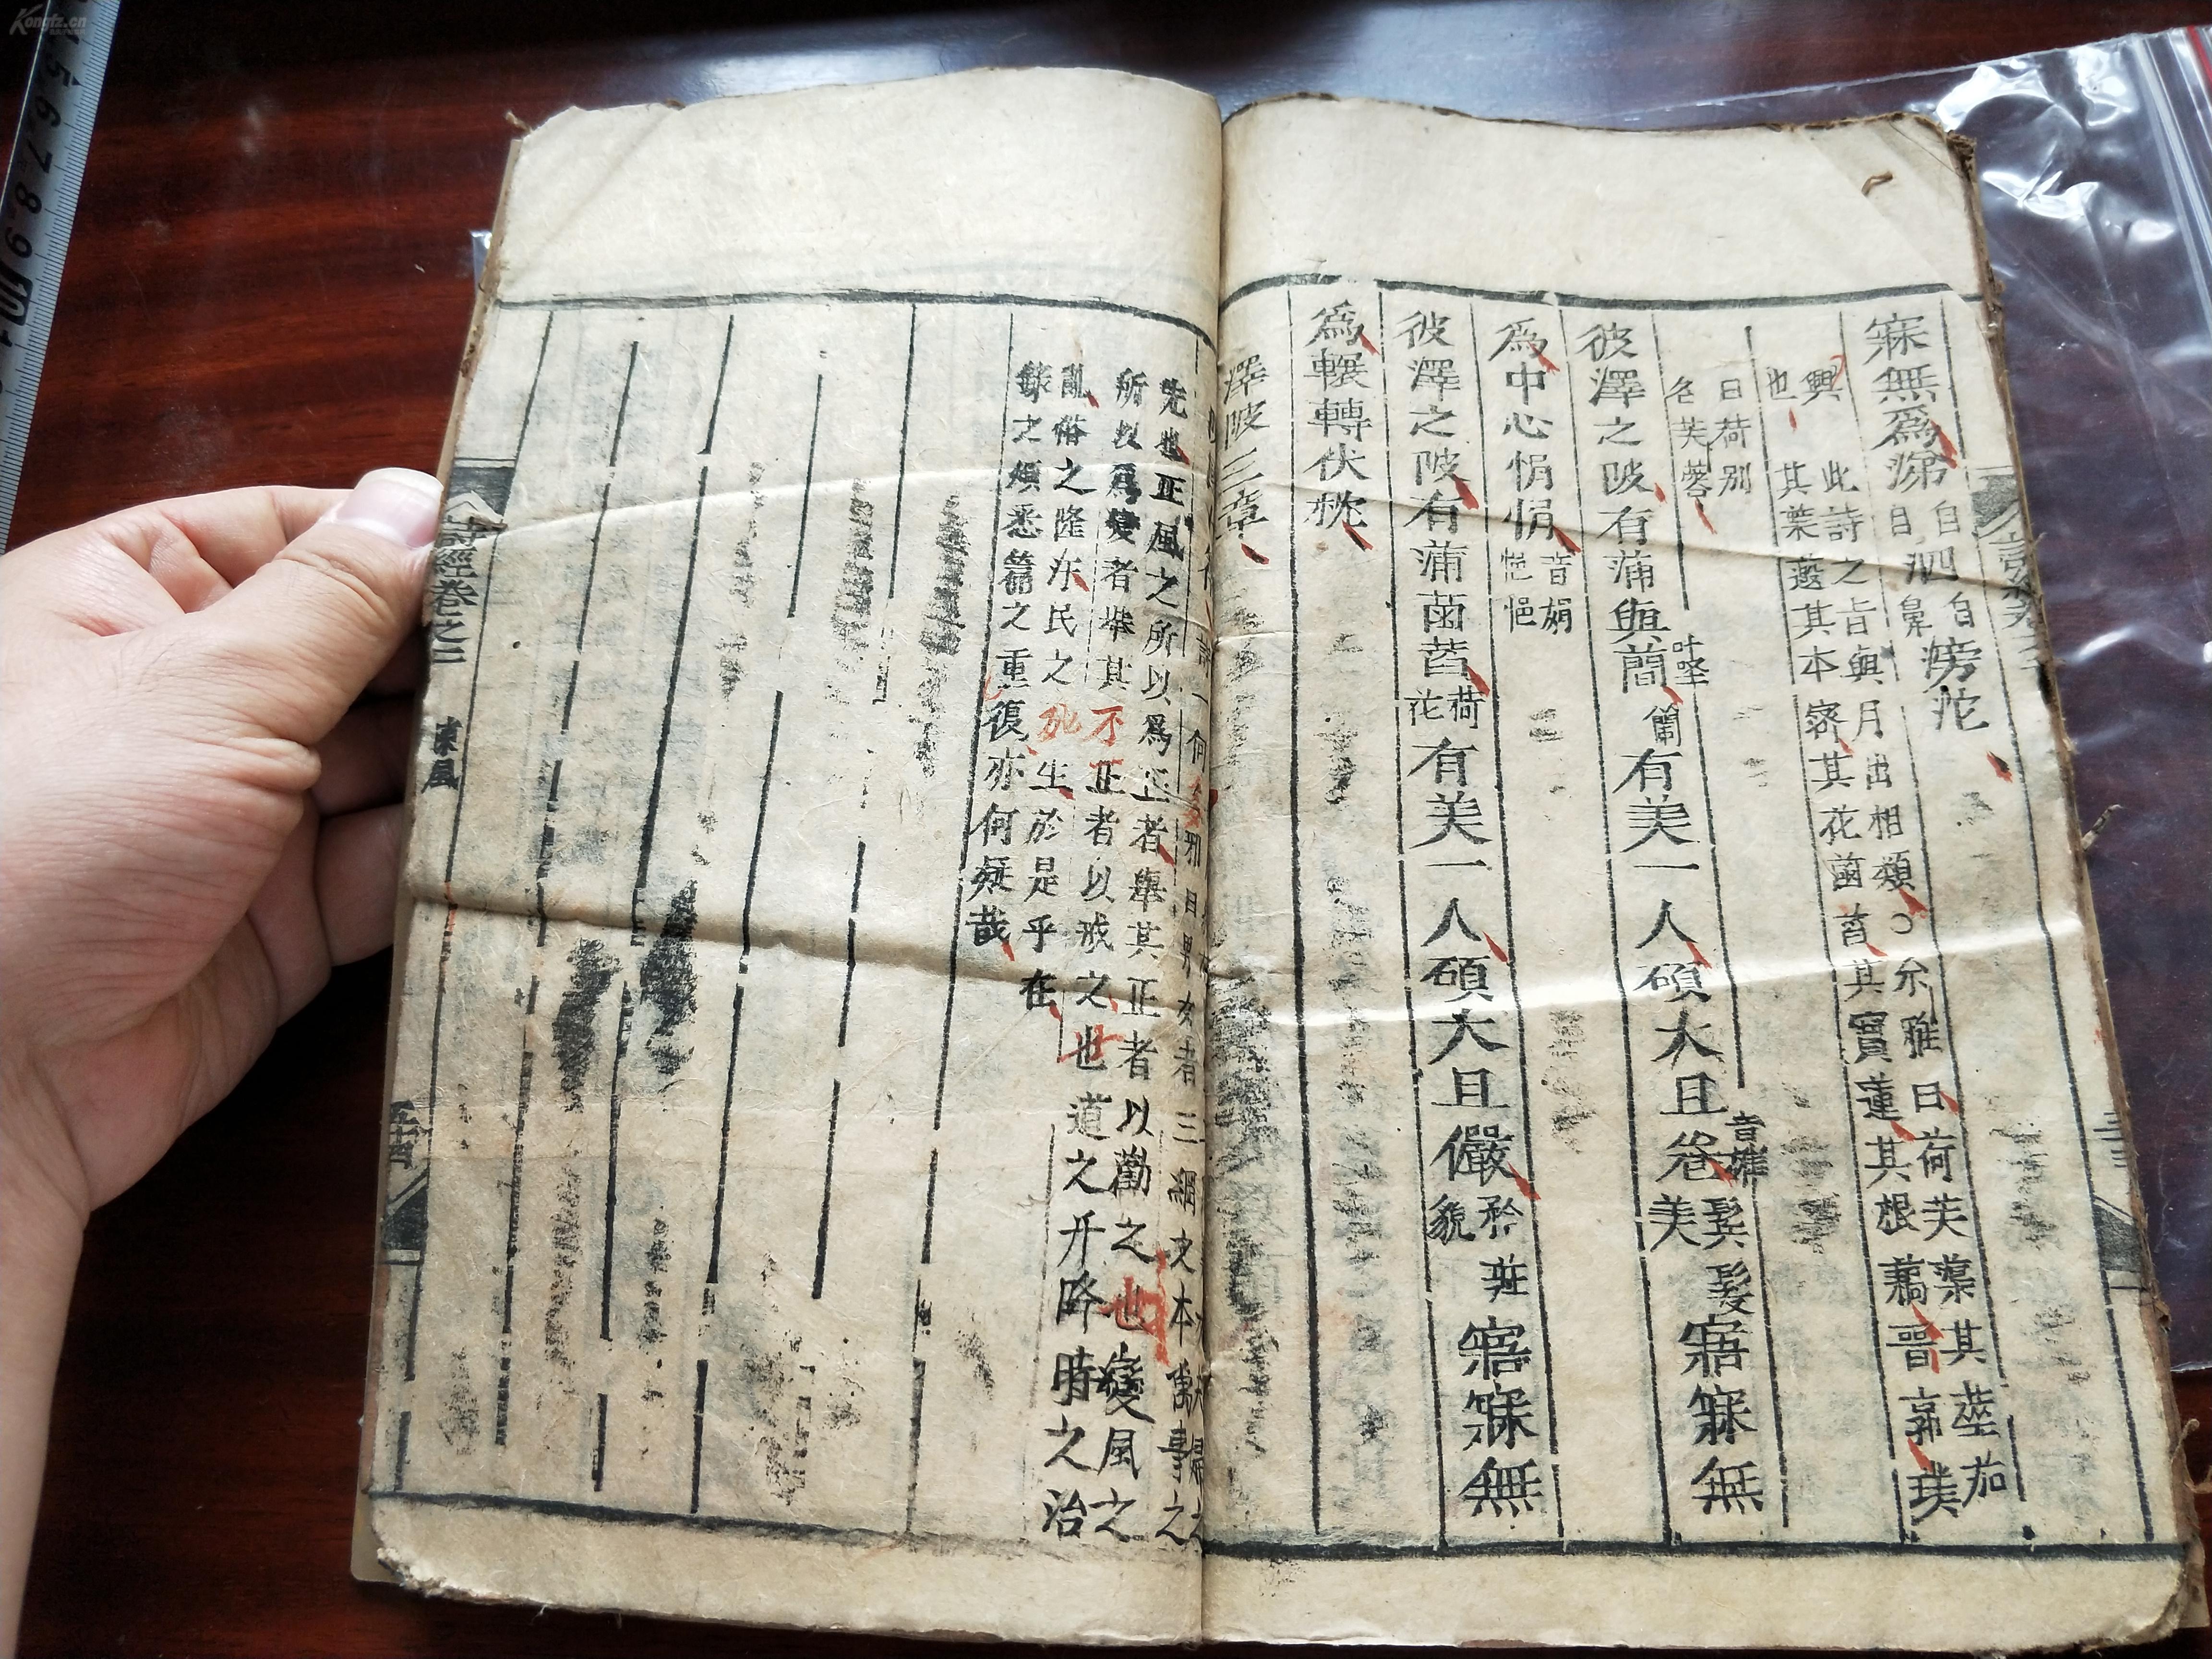 寐無爲涕自目泗自鼻滂沱
興也
此詩之旨與月出相類○尒雅曰荷芙蕖其莖茄
其葉蕸其本蔤其花菡萏其實蓮其根藕晉郭璞
曰荷別名芙蓉
彼澤之陂有蒲與蕑叶堅蘭有美一人碩大且卷音權鬢髮美寤寐無
爲中心悁悁音娟悒悒
彼澤之陂有蒲菡萏荷花有美一人碩大且儼矜莊貌寤寐無
爲輾轉伏枕
澤陂三章
何 邪曰男女者三綱之本萬事之
先也正風之所以爲正者舉其正者以勸之也變風之
所以爲變者舉其不正者以戒之也道之升降時之治
亂俗之隆汚民之死生於是乎在
錄之煩悉篇之重復亦何疑哉
詩經卷之二
陳風
Kongfz.cn
5 6 7 8 9